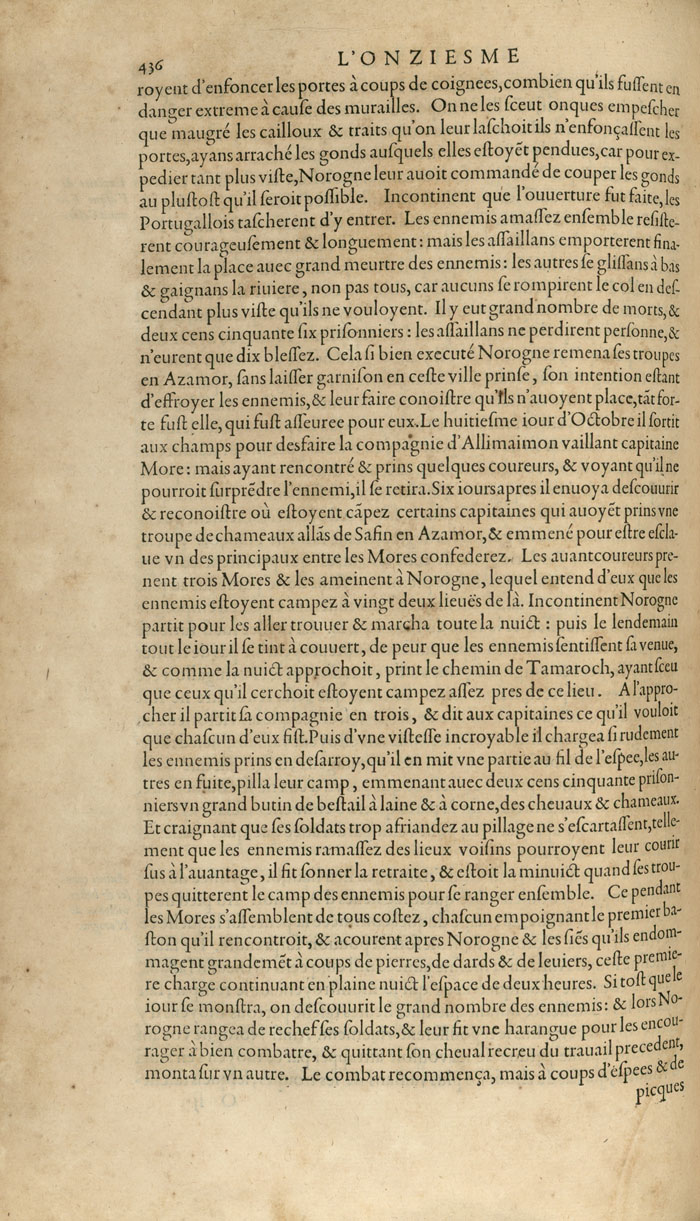 436
L'ONZIESME
royent d'enfoncer les portes à coups de coignees, combien qu'ils fuſſent en
danger extreme à cauſe des murailles. On ne les ſceut onques empeſcher
que maugré les cailloux & traits qu'on leur laſchoit ils n'enfonçaſſent les
portes, ayans arraché les gonds auſquels elles eſtoyēt pendues, car pour ex-
pedier tant plus viſte, Norogne leur auoit commandé de couper les gonds
au pluſtoſt qu'il ſeroit poſſible. Incontinent que l'ouuerture fut faite, les
Portugallois taſcherent d'y entrer. Les ennemis amaſſez enſemble reſiſte-
rent courageuſement & longuement: mais les aſſaillans emporterent fina-
lement la place auec grand meurtre des ennemis: les autres ſe gliſſans à bas
& gaignans la riuiere, non pas tous, car aucuns ſe rompirent le col en deſ-
cendant plus viſte qu'ils ne vouloyent. Il y eut grand nombre de morts, &
deux cens cinquante ſix priſonniers: les aſſaillans ne perdirent perſonne, &
n'eurent que dix bleſſez. Cela ſi bien executé Norogne remena ſes troupes
en Azamor, ſans laiſſer garniſon en ceſte ville prinſe, ſon intention eſtant
d'effroyer les ennemis, & leur faire conoiſtre qu'ils n'auoyent place, tāt for-
te fuſt elle, qui fuſt aſſeuree pour eux. Le huitieſme iour d'Octobre il ſortit
aux champs pour desfaire la compagnie d'Allimaimon vaillant capitaine
More: mais ayant rencontré & prins quelques coureurs, & voyant qu'il ne
pourroit ſurprēdre l'ennemi, il ſe retira. Six iours apres il enuoya deſcouurir
& reconoiſtre où eſtoyent cāpez certains capitaines qui auoyēt prins vne
troupe de chameaux allās de Safin en Azamor, & emmené pour eſtre eſcla-
ue vn des principaux entre les Mores confederez. Les auantcoureurs pre-
nent trois Mores & les ameinent à Norogne, lequel entend d'eux que les
ennemis eſtoyent campez à vingt deux lieuës de là. Incontinent Norogne
partit pour les aller trouuer & marcha toute la nuict: puis le lendemain
tout le iour il ſe tint à couuert, de peur que les ennemis ſentiſſent ſa venue,
& comme la nuict approchoit, print le chemin de Tamaroch, ayant ſceu
que ceux qu'il cerchoit eſtoyent campez aſſez pres de ce lieu. A l'appro-
cher il partit ſa compagnie en trois, & dit aux capitaines ce qu'il vouloit
que chaſcun d'eux fiſt. Puis d'vne viſteſſe incroyable il chargea ſi rudement
les ennemis prins en deſarroy, qu'il en mit vne partie au fil de l'eſpee, les au-
tres en fuite, pilla leur camp, emmenant auec deux cens cinquante priſon-
niers vn grand butin de beſtail à laine & à corne, des cheuaux & chameaux.
Et craignant que ſes ſoldats trop afriandez au pillage ne s'eſcartaſſent, telle-
ment que les ennemis ramaſſez des lieux voiſins pourroyent leur courir
ſus à l'auantage, il fit ſonner la retraite, & eſtoit la minuict quand ſes trou-
pes quitterent le camp des ennemis pour ſe ranger enſemble. Ce pendant
les Mores s'aſſemblent de tous coſtez, chaſcun empoignant le premier ba-
ſton qu'il rencontroit, & acourent apres Norogne & les ſiēs qu'ils endom-
magent grandemēt à coups de pierres, de dards & de leuiers, ceſte premie-
re charge continuant en plaine nuict l'eſpace de deux heures. Si toſt que le
iour ſe monſtra, on deſcouurit le grand nombre des ennemis: & lors No-
rogne rangea de rechef ſes ſoldats, & leur fit vne harangue pour les encou-
rager à bien combatre, & quittant ſon cheual recreu du trauail precedent,
monta ſur vn autre. Le combat recommença, mais à coups d'eſpees & de
picques